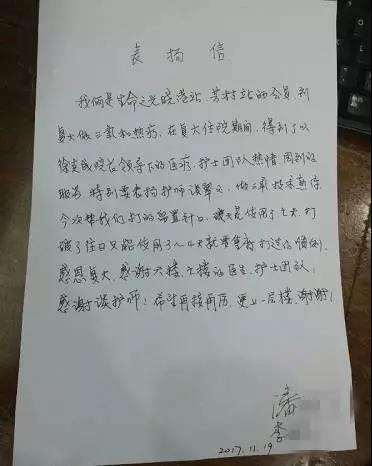 表扬信
我们是生命之光晓港站、芳村站的会员,到
复大做三氧和热疗,在复大住院期间,得到了以
徐克成院长领导下的医疗、护士团队热情、周到的
服务,特别要表扬护师谈翠,做三氧技术高,
今次帮我们打的留置针口,使用了七天,打
破了往日只能使用了~4天就需重新打过的惯例,
感恩复大、感谢六楼、七楼的医生、护士团队,
感谢谈护师!希望再接再历,更上一层楼,谢谢!
潘
李
2017.11.19